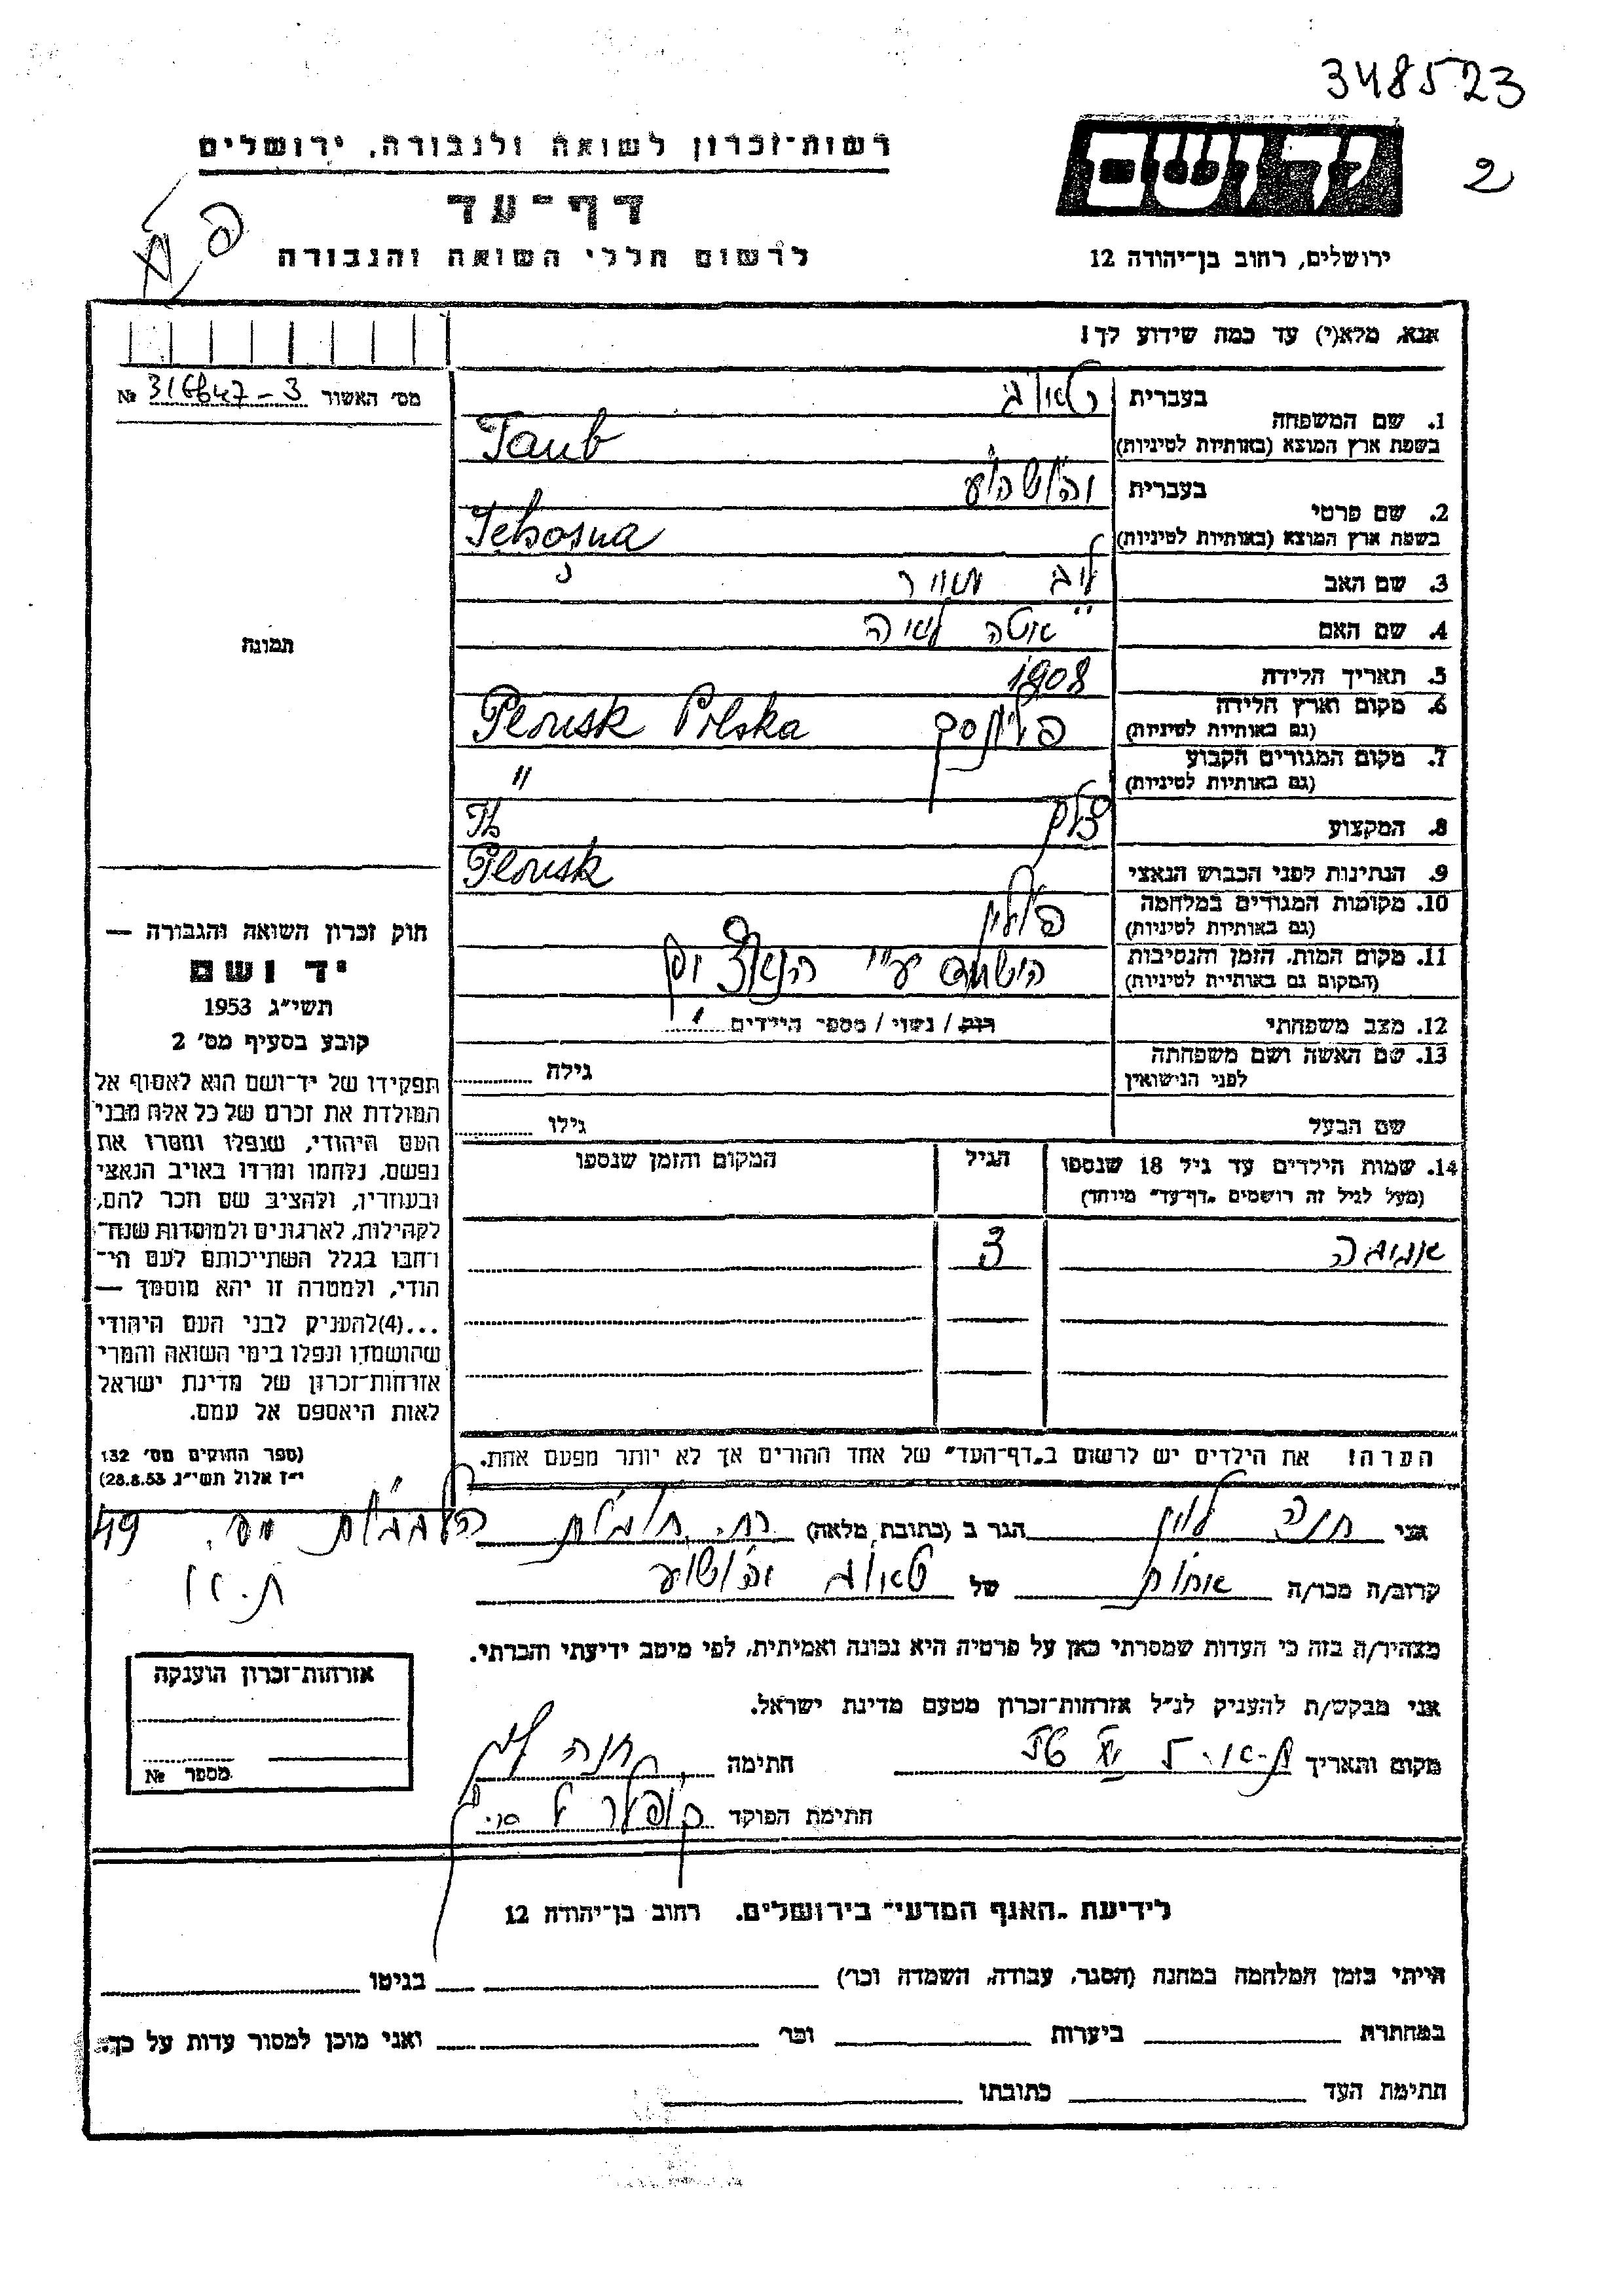 348523
2
יד ושם
רשות־זכרון לשואה ולגבורה, ירושלים
דף־עד
לרשום חללי השואה והגבורה
ירושלים, רחוב בן־יהודה 12
אנא, מלא(י) עד כמה שידוע לך!
מס׳ האשור 316647-3 №
1. שם המשפחה
בעברית טאוב
בשפת ארץ המוצא (באותיות לטיניות) Taub
2. שם פרטי
בעברית יהושע
בשפת ארץ המוצא (באותיות לטיניות) Jehosua
3. שם האב
4. שם האם
5. תאריך הלידה 1908
6. מקום וארץ הלידה
(גם באותיות לטיניות) Plonsk Polska
7. מקום המגורים הקבוע
(גם באותיות לטיניות) "
8. המקצוע
9. הנתינות לפני הכבוש הנאצי
10. מקומות המגורים במלחמה
(גם באותיות לטיניות) פולין Plonsk
11. מקום המות, הזמן והנסיבות
(המקום גם באותיית לטיניות) הושמד ע״י הנאצים
12. מצב משפחתי רוק / נשוי / מספר הילדים 1
13. שם האשה ושם משפחתה
לפני הנישואין
גילה
שם הבעל גילו
תמונה
חוק זכרון השואה והגבורה —
יד ושם
תשי״ג 1953
קובע בסעיף מס׳ 2
תפקידו של יד־ושם הוא לאסוף אל
המולדת את זכרם של כל אלה מבני
העם היהודי, שנפלו ומסרו את
נפשם, נלחמו ומרדו באויב הנאצי
ובעוזריו, ולהציב שם וזכר להם,
לקהילות, לארגונים ולמוסדות שנח־
רבו בגלל השתייכותם לעם הי־
הודי, ולמטרה זו יהא מוסמך —
...(4)להעניק לבני העם היהודי
שהושמדו ונפלו בימי השואה והמרי
אזרחות־זכרון של מדינת ישראל
לאות היאספם אל עמם.
(ספר החוקים מס׳ 132
י״ז אלול תשי״ג 28.8.53)
14. שמות הילדים עד גיל 18 שנספו
(מעל לגיל זה רושמים „דף־עד״ מיוחד)
הגיל
המקום והזמן שנספו
3
הערה! את הילדים יש לרשום ב„דף־העד״ של אחד ההורים אך לא יותר מפעם אחת.
אני חנה לוין הגר ב (כתובת מלאה) רח. חומת 49
ת.א
קרוב/ה מכר/ה אחות של טאוב יהושע
מצהיר/ה בזה כי העדות שמסרתי כאן על פרטיה היא נכונה ואמיתית, לפי מיטב ידיעתי והכרתי.
אני מבקש/ת להעניק לנ״ל אזרחות־זכרון מטעם מדינת ישראל.
מקום ותאריך ת-א
חתימה חנה לוין
חתימת הפוקד
אזרחות־זכרון הוענקה
מספר №
לידיעת „האגף המדעי״ בירושלים. רחוב בן־יהודה 12
הייתי בזמן המלחמה במחנה (הסגר, עבודה, השמדה וכר׳) בגיטו
במחתרת ביערות וכר׳ ואני מוכן למסור עדות על כך.
חתימת העד כתובתו